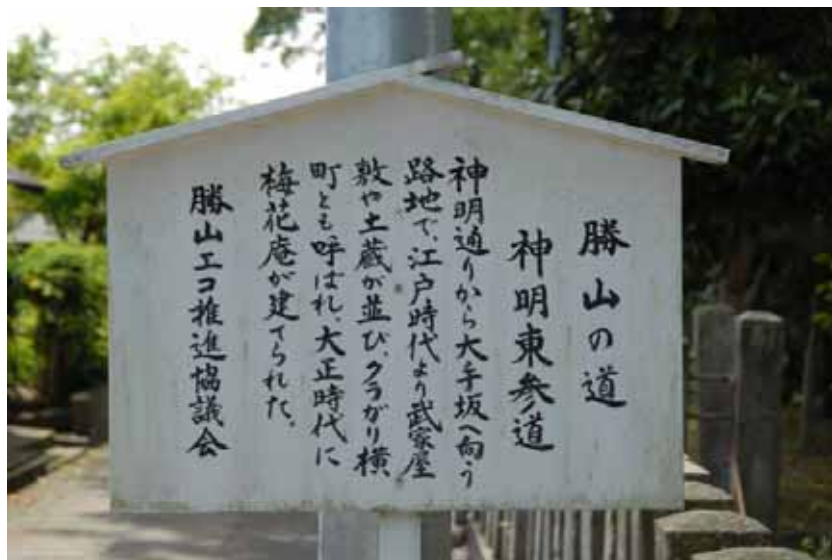 勝山の道
神明東参道
神明通りから大手坂へ向う
路地で、江戸時代より武家屋
敷や土蔵が並び、クラがり横
町とも呼ばれ、大正時代に
梅花庵が建てられた。
勝山エコ推進協議会